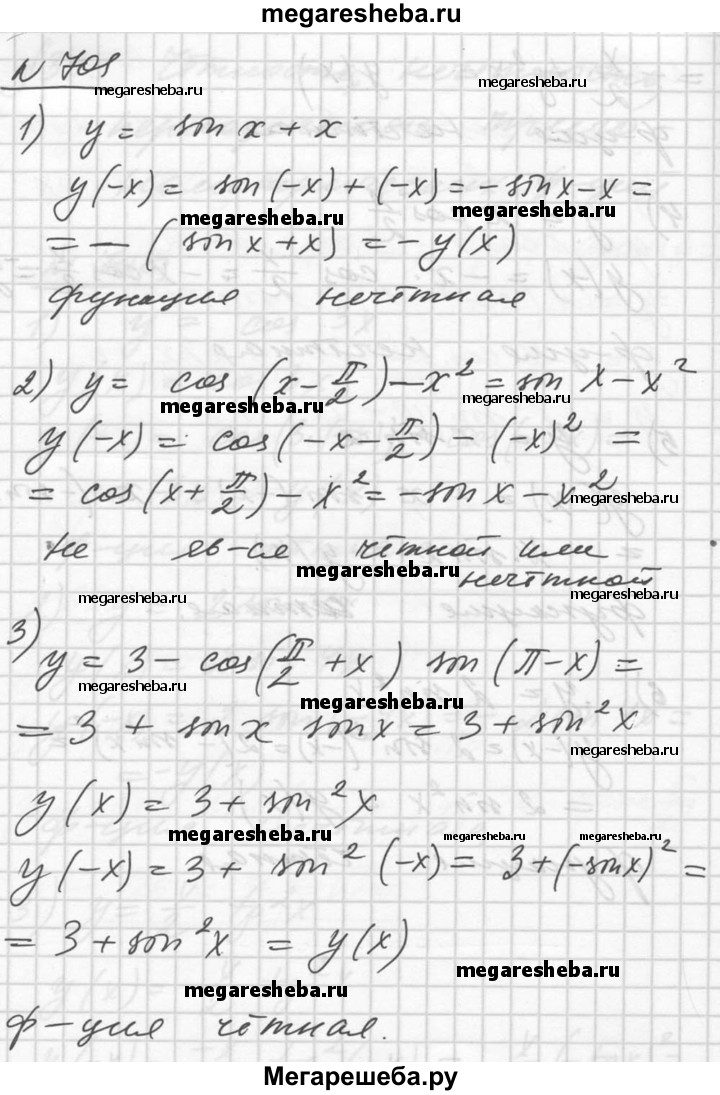 megaresheba.ru
N 701
megaresheba.ru megaresheba.ru
1) y = sin x + x
y(-x) = sin(-x) + (-x) = - sin x - x =
megaresheba.ru megaresheba.ru
= - (sin x + x) = - y(x)
функция нечётная
megaresheba.ru
2) y = cos (x - π/2) - x² = sin x - x²
megaresheba.ru megaresheba.ru
y(-x) = cos(-x - π/2) - (-x)² =
= cos(x + π/2) - x² = - sin x - x²
megaresheba.ru
не яв-ся чётной или
нечётной
megaresheba.ru megaresheba.ru megaresheba.ru
3)
y = 3 - cos(π/2 + x) sin(π - x) =
megaresheba.ru megaresheba.ru
= 3 + sin x sin x = 3 + sin² x
megaresheba.ru
y(x) = 3 + sin² x
megaresheba.ru megaresheba.ru megaresheba.ru
y(-x) = 3 + sin² (-x) = 3 + (-sin x)² =
= 3 + sin² x = y(x)
megaresheba.ru
megaresheba.ru
ф-ция чётная.
Мегарешеба.ру